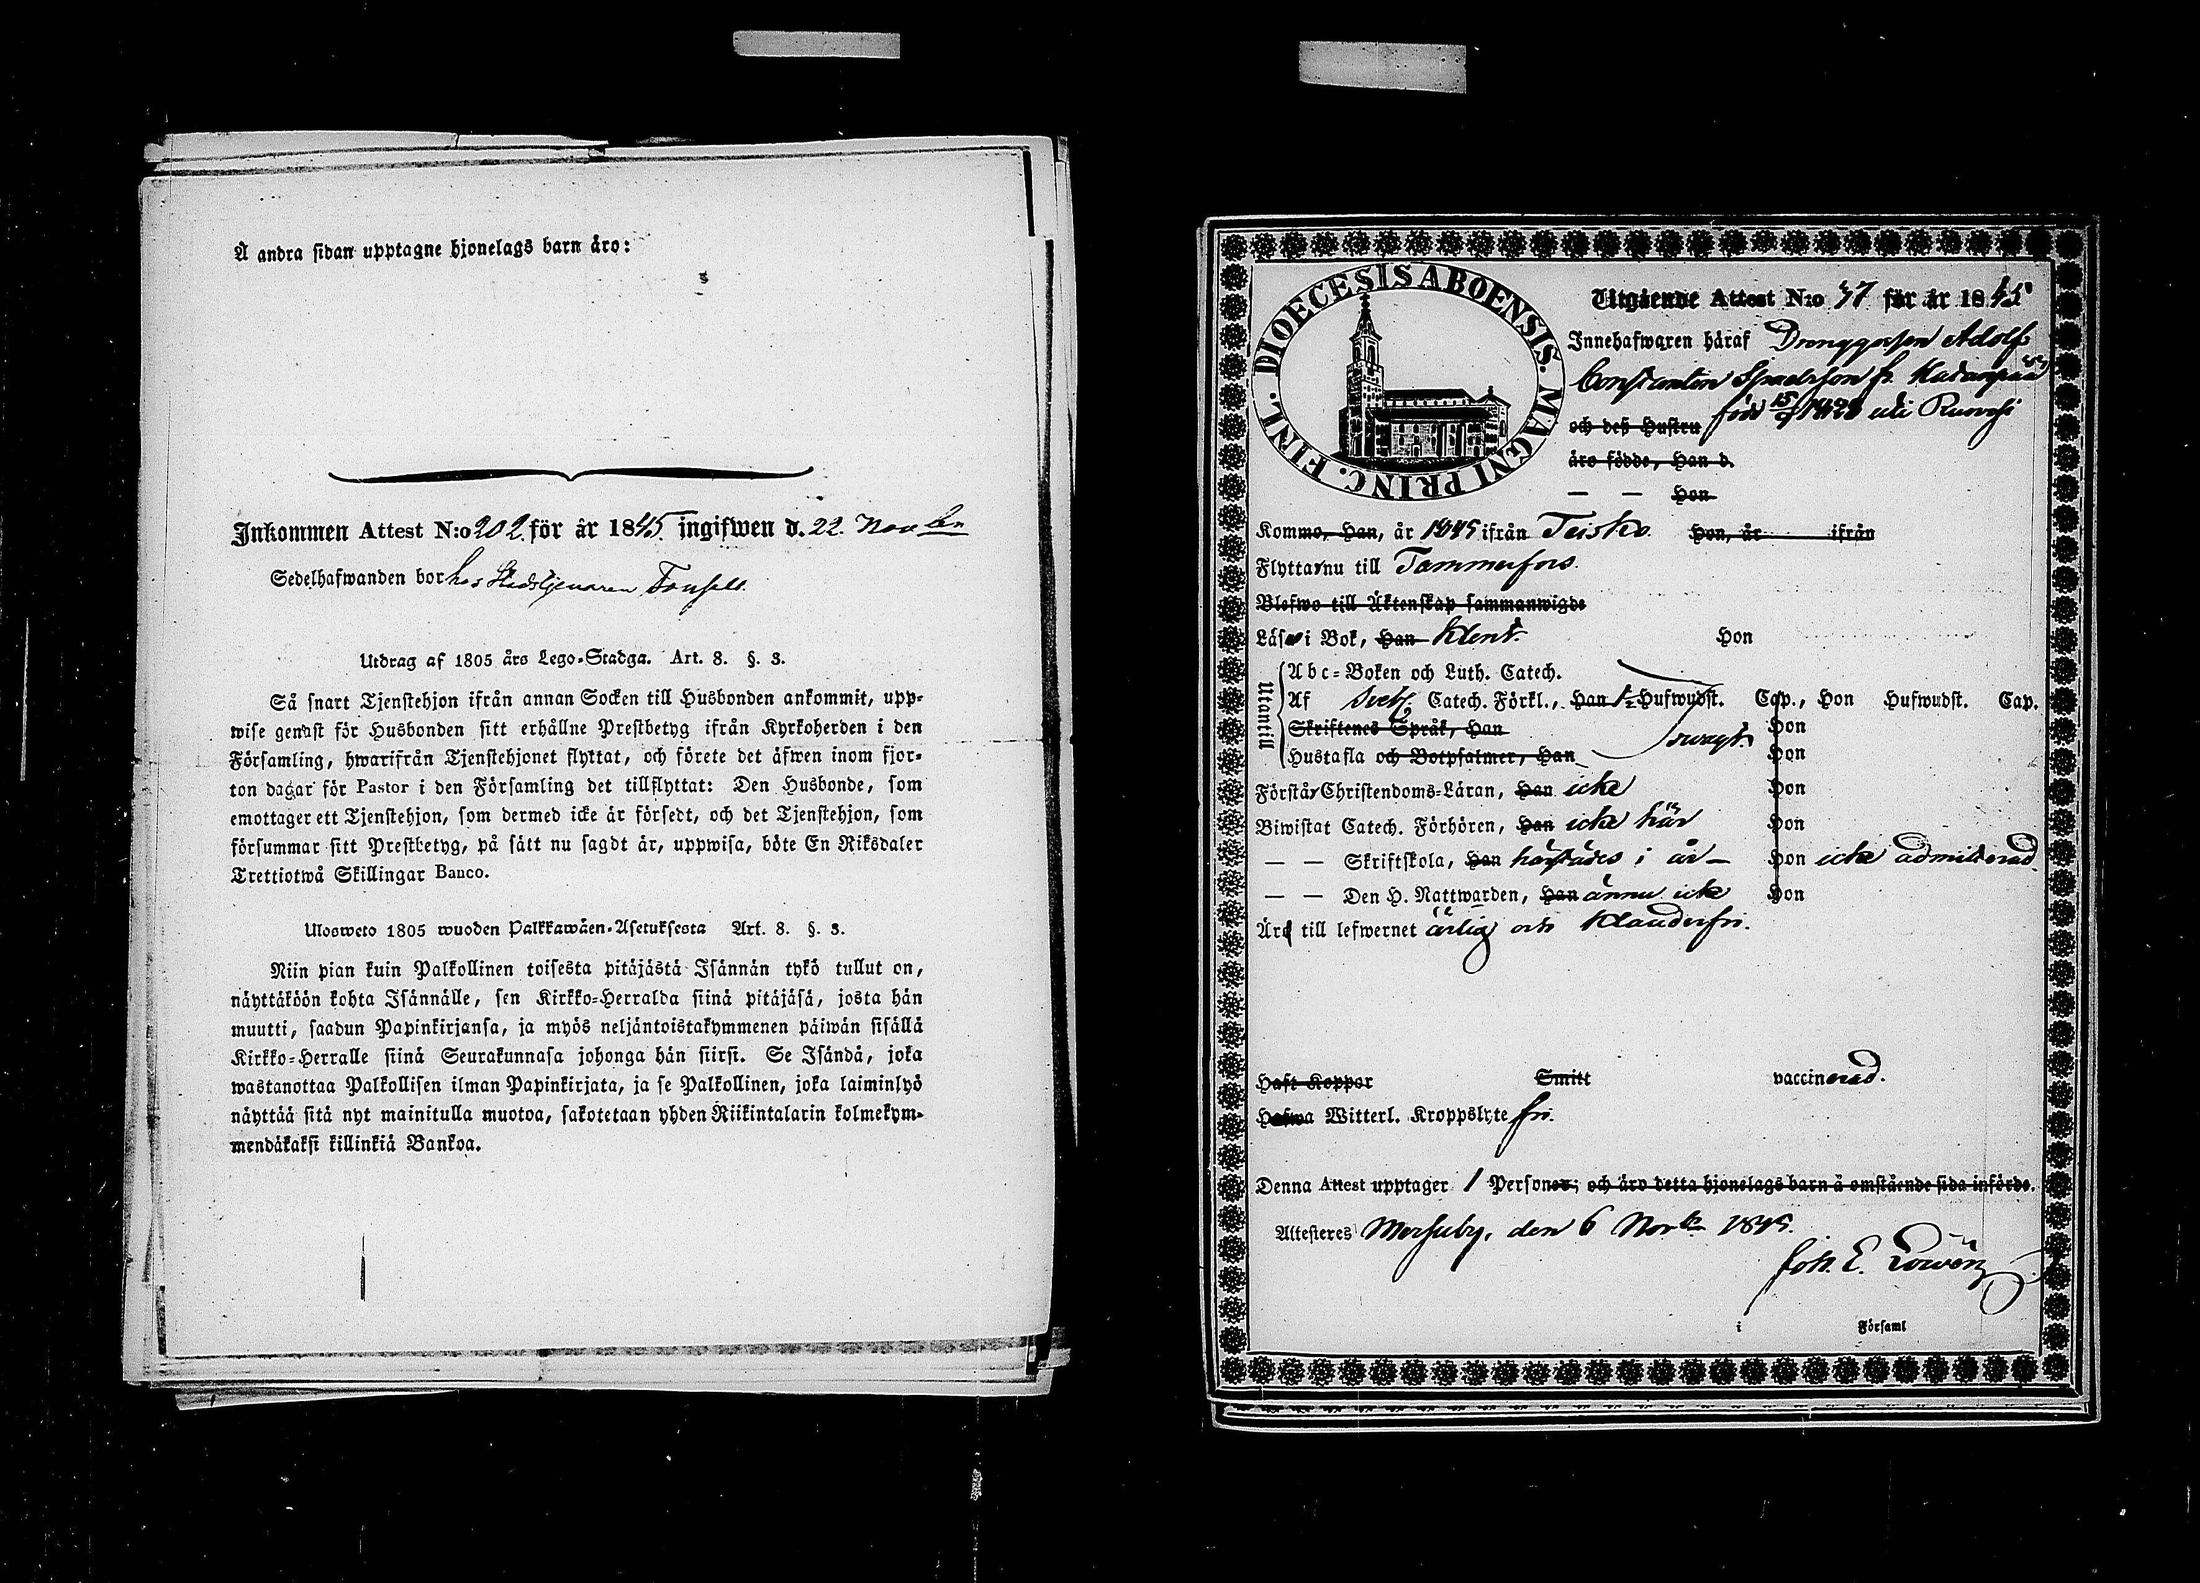 Å andra sidan upptagne hjonelags barn äro:
Inkommen Attest N:o 202 för år 1845 ingifwen d. 22. Novben
Sedelhafwanden bor hos Stadstjenaren
Utdrag af 1805 års Lego-Stadga. Art. 8. §. 3.
Så snart Tjenstehjon ifrån annan Socken till Husbonden ankommit, upp-
wise genast för Husbonden sitt erhållne Prestbetyg ifrån Kyrkoherden i den
Församling, hwarifrån Tjenstehjonet flyttat, och förete det äfwen inom fjor-
ton dagar för Pastor i den Församling det tillflyttat: Den Husbonde, som
emottager ett Tjenstehjon, som dermed icke är försedt, och det Tjenstehjon, som
försummar sitt Prestbetyg, på sätt nu sagdt är, uppwisa, böte En Riksdaler
Trettiotwå Skillingar Banco.
Ulosweto 1805 wuoden Palkkawäen-Asetuksesta Art. 8. §. 3.
Niin pian kuin Palkollinen toisesta pitäjästä Isännän tykö tullut on,
näyttäköön kohta Isännälle, sen Kirkko-Herralda siinä pitäjäsä, josta hän
muutti, saadun Papinkirjansa, ja myös neljäntoistakymmenen päiwän sisällä
Kirkko-Herralle siinä Seurakunnasa johonga hän siirsi. Se Isändä, joka
wastanottaa Palkollisen ilman Papinkirjata, ja se Palkollinen, joka laiminlyö
näyttää sitä nyt mainitulla muotoa, sakotetaan yhden Riikintalarin kolmekym-
mendäkaksi killinkiä Bankoa.
DIOECESIS ABOENSIS. MAGNI PRINC. FINL.
Utgående Attest N:o 47 för år 1845
Innehafwaren häraf Drenggossen Adolf
Constantin fr.
och deß Hustru född 15/9 uti Ruovesi
äro födde, Han d.
— — Hon
Kommo, Han, år 1845 ifrån Teisko. Hon, år ifrån
Flyttar nu till Tammerfors.
Blefwo till Äktenskap sammanwigde
Läse i Bok, Han klent. Hon
Utantill
Abc-Boken och Luth. Catech.
Af Sveb. Catech. Förkl., Han Hufwudst. Cap., Hon Hufwudst. Cap.
Skriftenes Språk, Han Hon
svagt.
Hustafla och Botpsalmer, Han Hon
Förstår Christendoms-Läran, Han icke Hon
Biwistat Catech. Förhören, Han icke här Hon
— — Skriftskola, Han härstädes i år — Hon icke admitterad
— — Den H. Nattwarden, Han ännu icke Hon
Äro till lefwernet ärlig och klanderfri.
Haft Koppor Smitt vaccinerad.
Hafwa Witterl. Kroppslyte fri.
Denna Attest upptager 1 Personer; och äro detta hjonelags barn å omstående sida införde.
Attesteres Messuby, den 6 Novbr 1845.
Joh. E. Lowén
i Församl